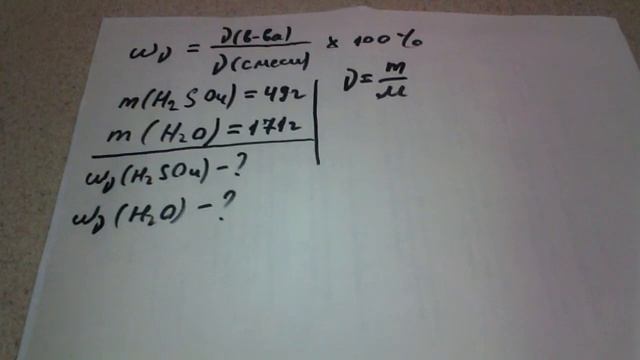 ω𝜈 = ν(в-ва) / ν(смеси) × 100%
m(H₂SO₄) = 49г
ν = m / M
m(H₂O) = 171г
ω𝜈(H₂SO₄) - ?
ω𝜈(H₂O) - ?